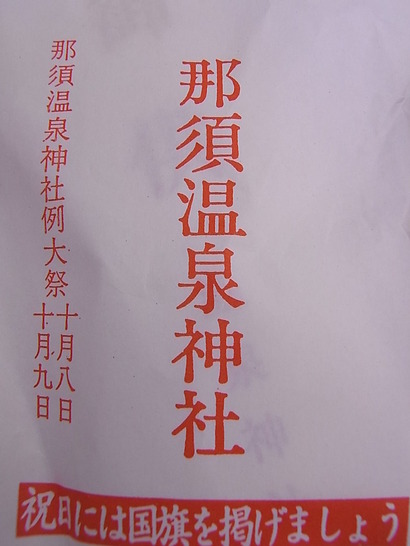 那須温泉神社
那須温泉神社例大祭
十月八日
十月九日
祝日には国旗を掲げましょう